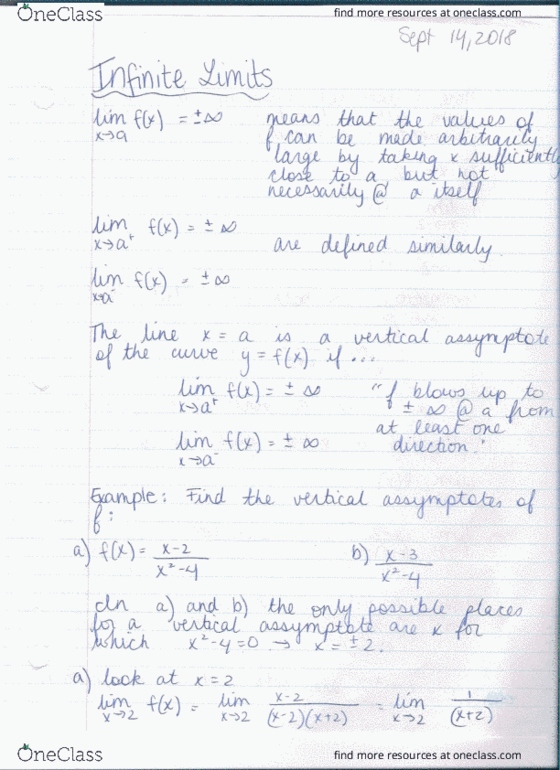 OneClass
find more resources at oneclass.com
Sept 14, 2018
Infinite Limits
lim f(x) = ±∞ means that the values of
x→a f can be made arbitrarily
large by taking x sufficiently
close to a but not
necessarily @ a itself
lim f(x) = ±∞
x→a⁺ are defined similarly.
lim f(x) = ±∞
x→a⁻
The line x = a is a vertical assymptote
of the curve y = f(x) if ...
lim f(x) = ±∞ "f blows up to
x→a⁺ ±∞ @ a from
lim f(x) = ±∞ at least one
x→a⁻ direction."
Example: Find the vertical assymptotes of
f:
a) f(x) = x-2 / x²-4 b) x-3 / x²-4
In a) and b) the only possible places
for a vertical assymptote are x for
which x²-4=0 → x = ±2.
a) look at x = 2
lim f(x) = lim x-2 / (x-2)(x+2) = lim 1 / (x+2)
x→2 x→2 x→2
OneClass
find more resources at oneclass.com